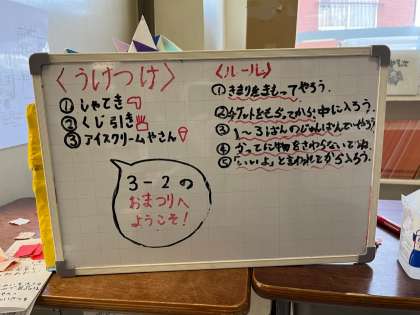 〈うけつけ〉
①しゃてき
②くじ引き
③アイスクリームやさん
3-2の
おまつりへ
ようこそ!
〈ルール〉
①きまりをまもってやろう。
②チケットをもらってから、中に入ろう。
③1〜3ばんのじゅんばんでいやろう
④かってに物をさわらないでね。
⑤「いいよ」と言われてから入ろう。